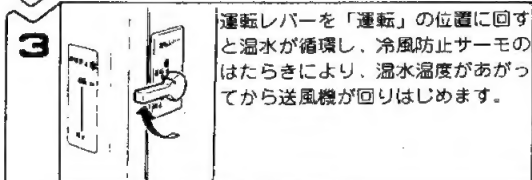 3
運転レバーを「運転」の位置に回す
と温水が循環し、冷風防止サーモの
はたらきにより、温水温度があがっ
てから送風機が回りはじめます。